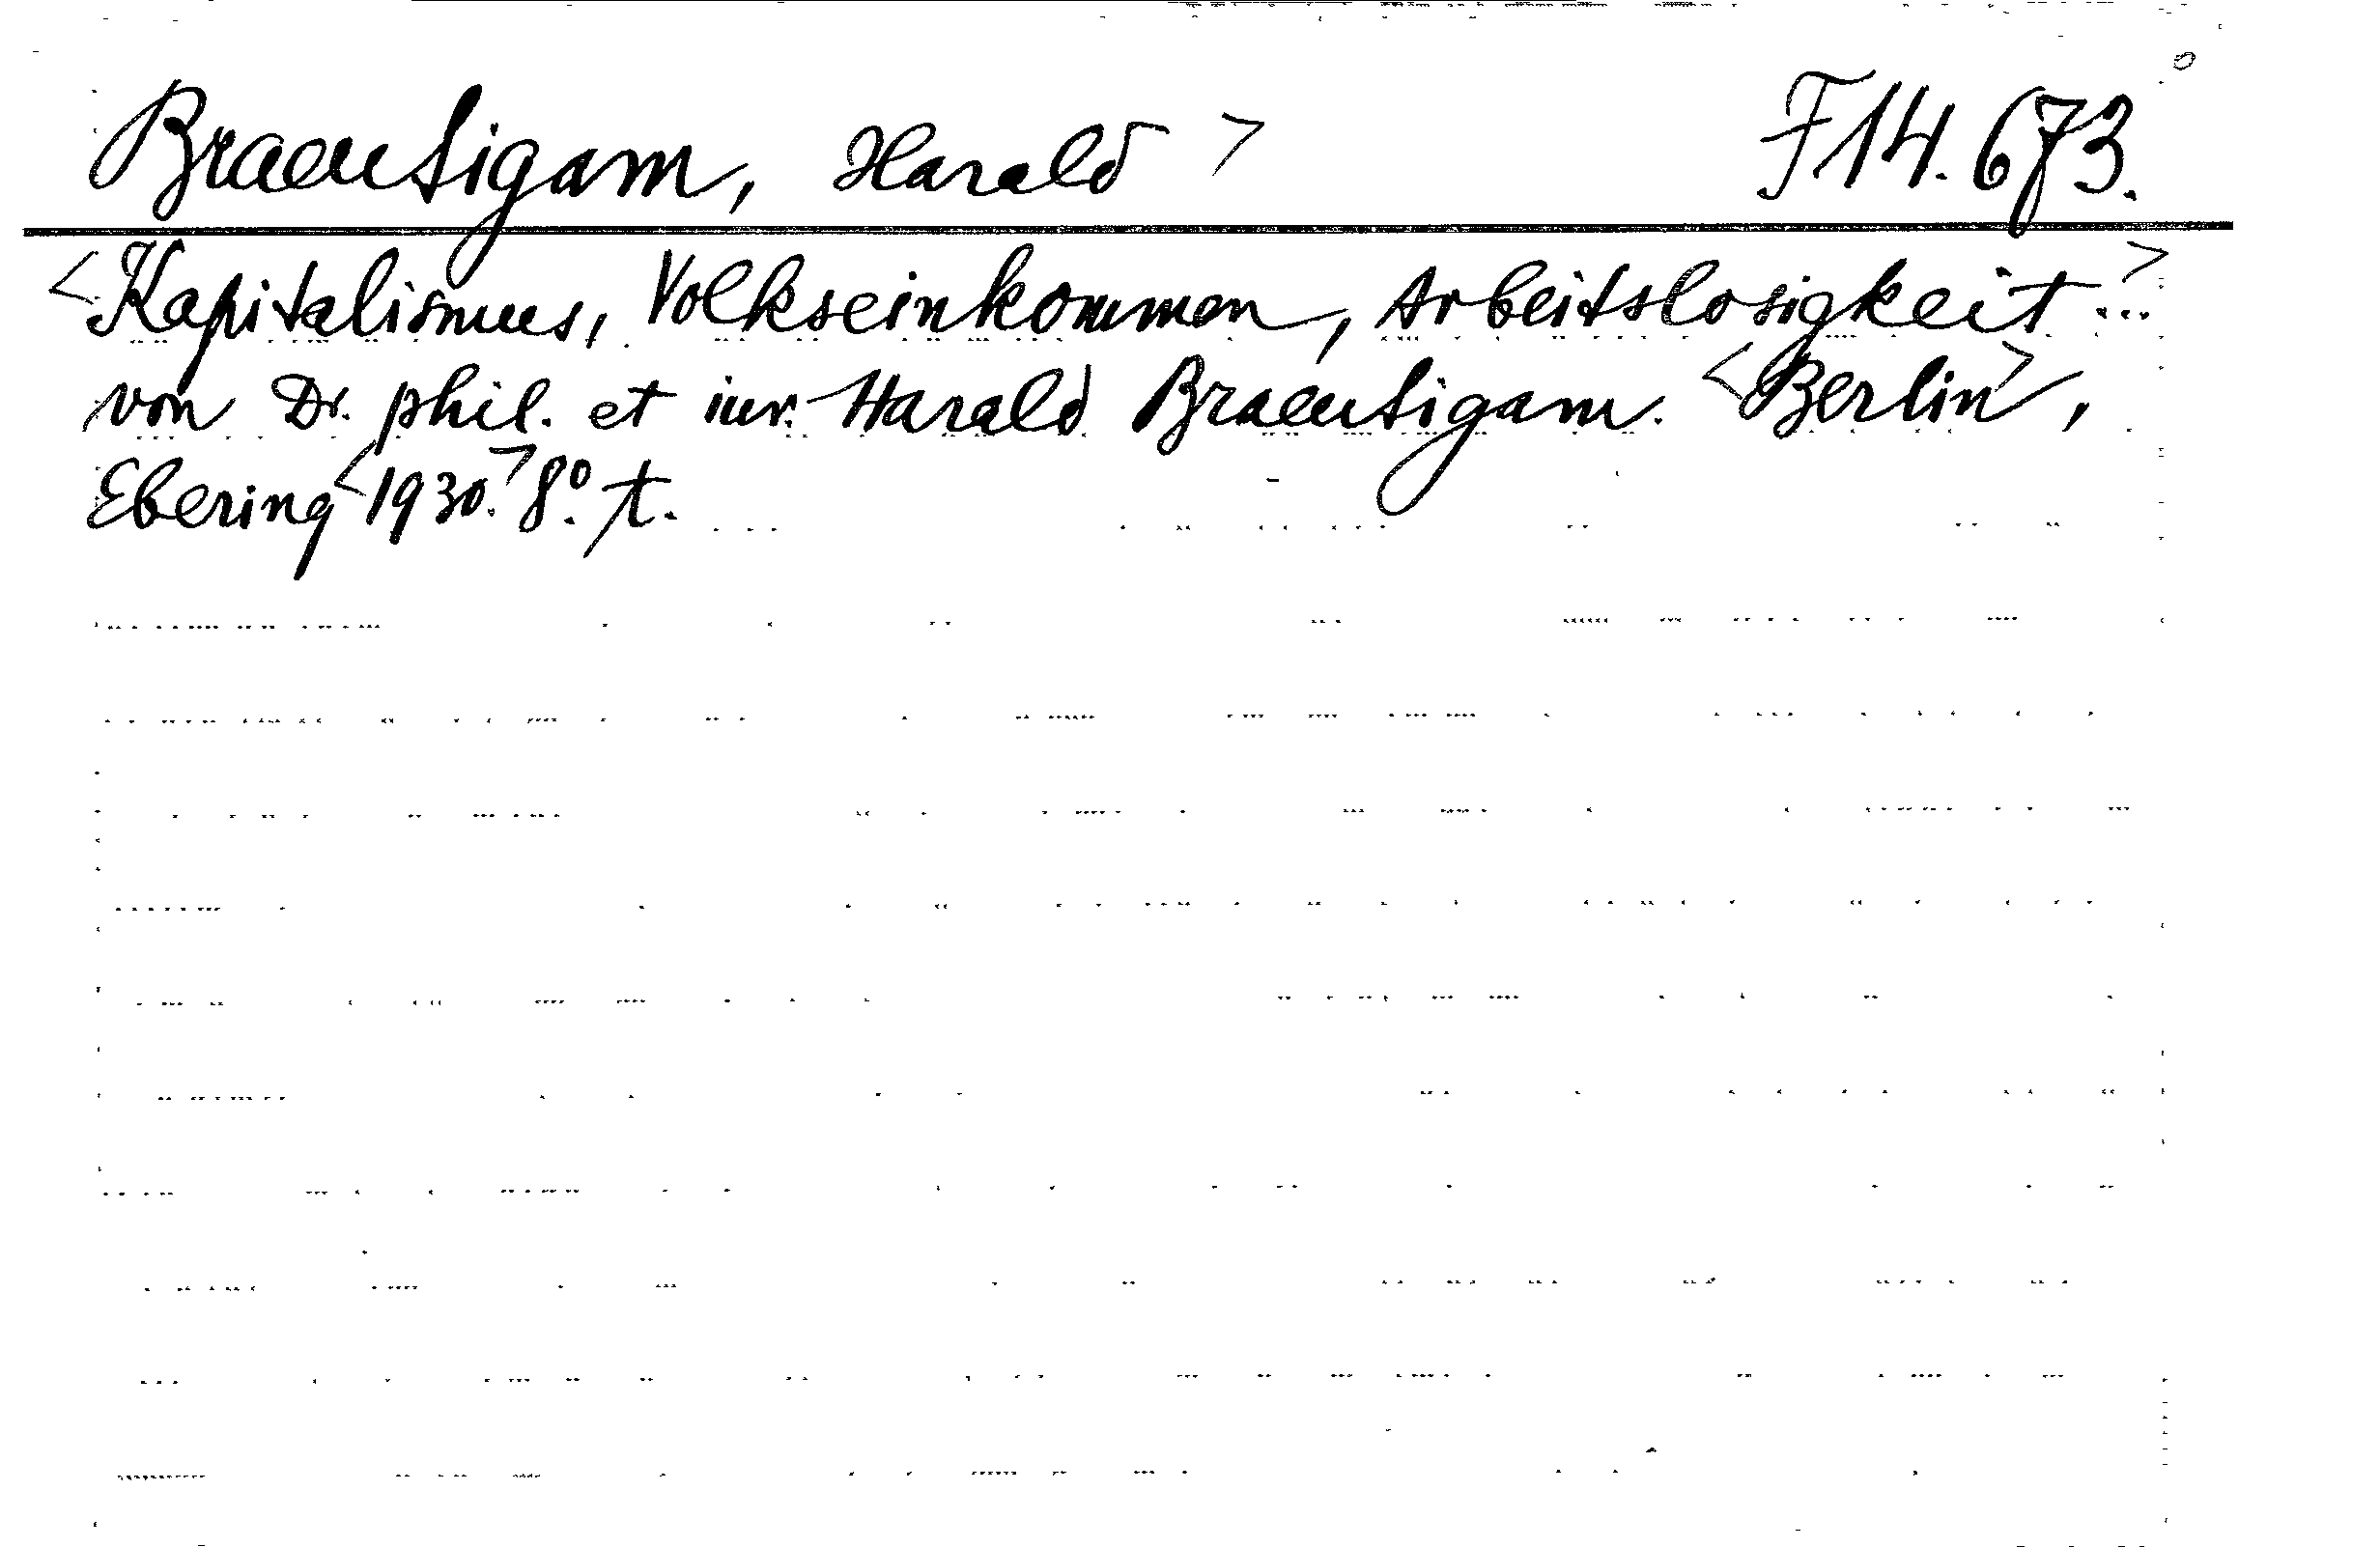 Braeutigam, Harald > F 14.673.
<Kapitalismus, Volkseinkommen, Arbeitslosigkeit...>
von Dr. phil. et iur. Harald Braeutigam. <Berlin>,
Ebering <1930.> 8°. t.